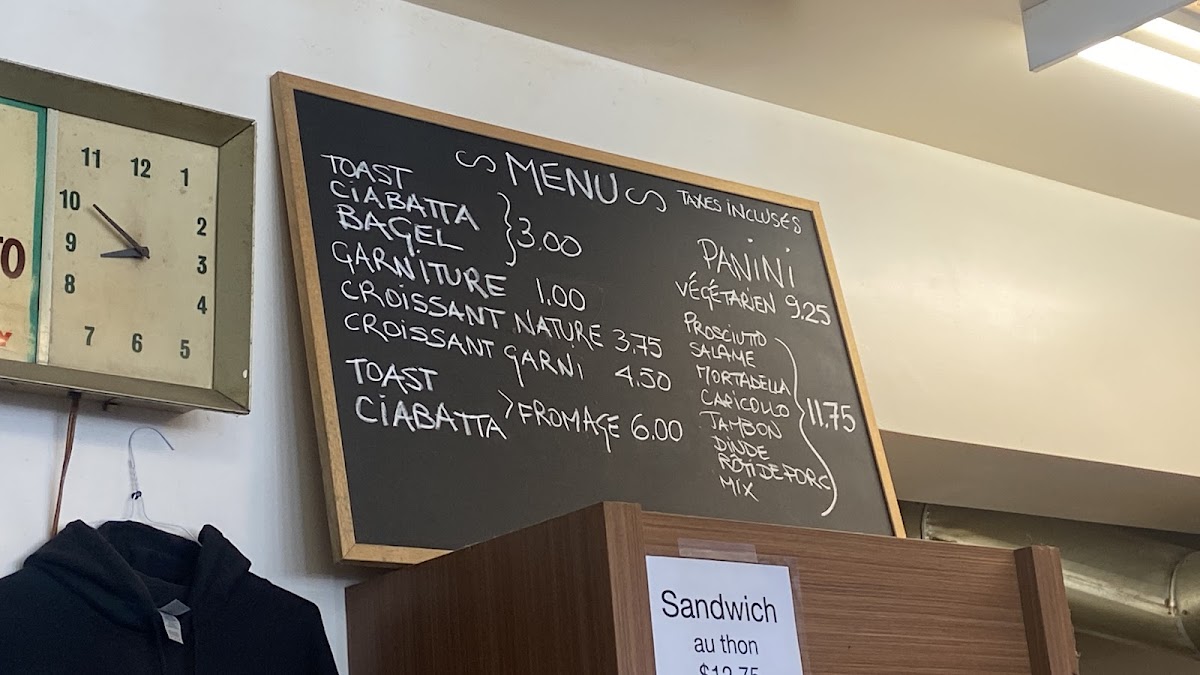 TO
11 12 1
10 2
9 3
8 4
7 6 5
MENU
TAXES INCLUSES
TOAST
CIABATTA
BAGEL
3.00
GARNITURE 1.00
CROISSANT NATURE 3.75
CROISSANT GARNI 4.50
TOAST
CIABATTA
FROMAGE 6.00
PANINI
VÉGÉTARIEN 9.25
PROSCIUTO
SALAME
MORTADELLA
CAPICOLLO
JAMBON
DINDE
RÔTI DE PORC
MIX
11.75
Sandwich
au thon
$12.75